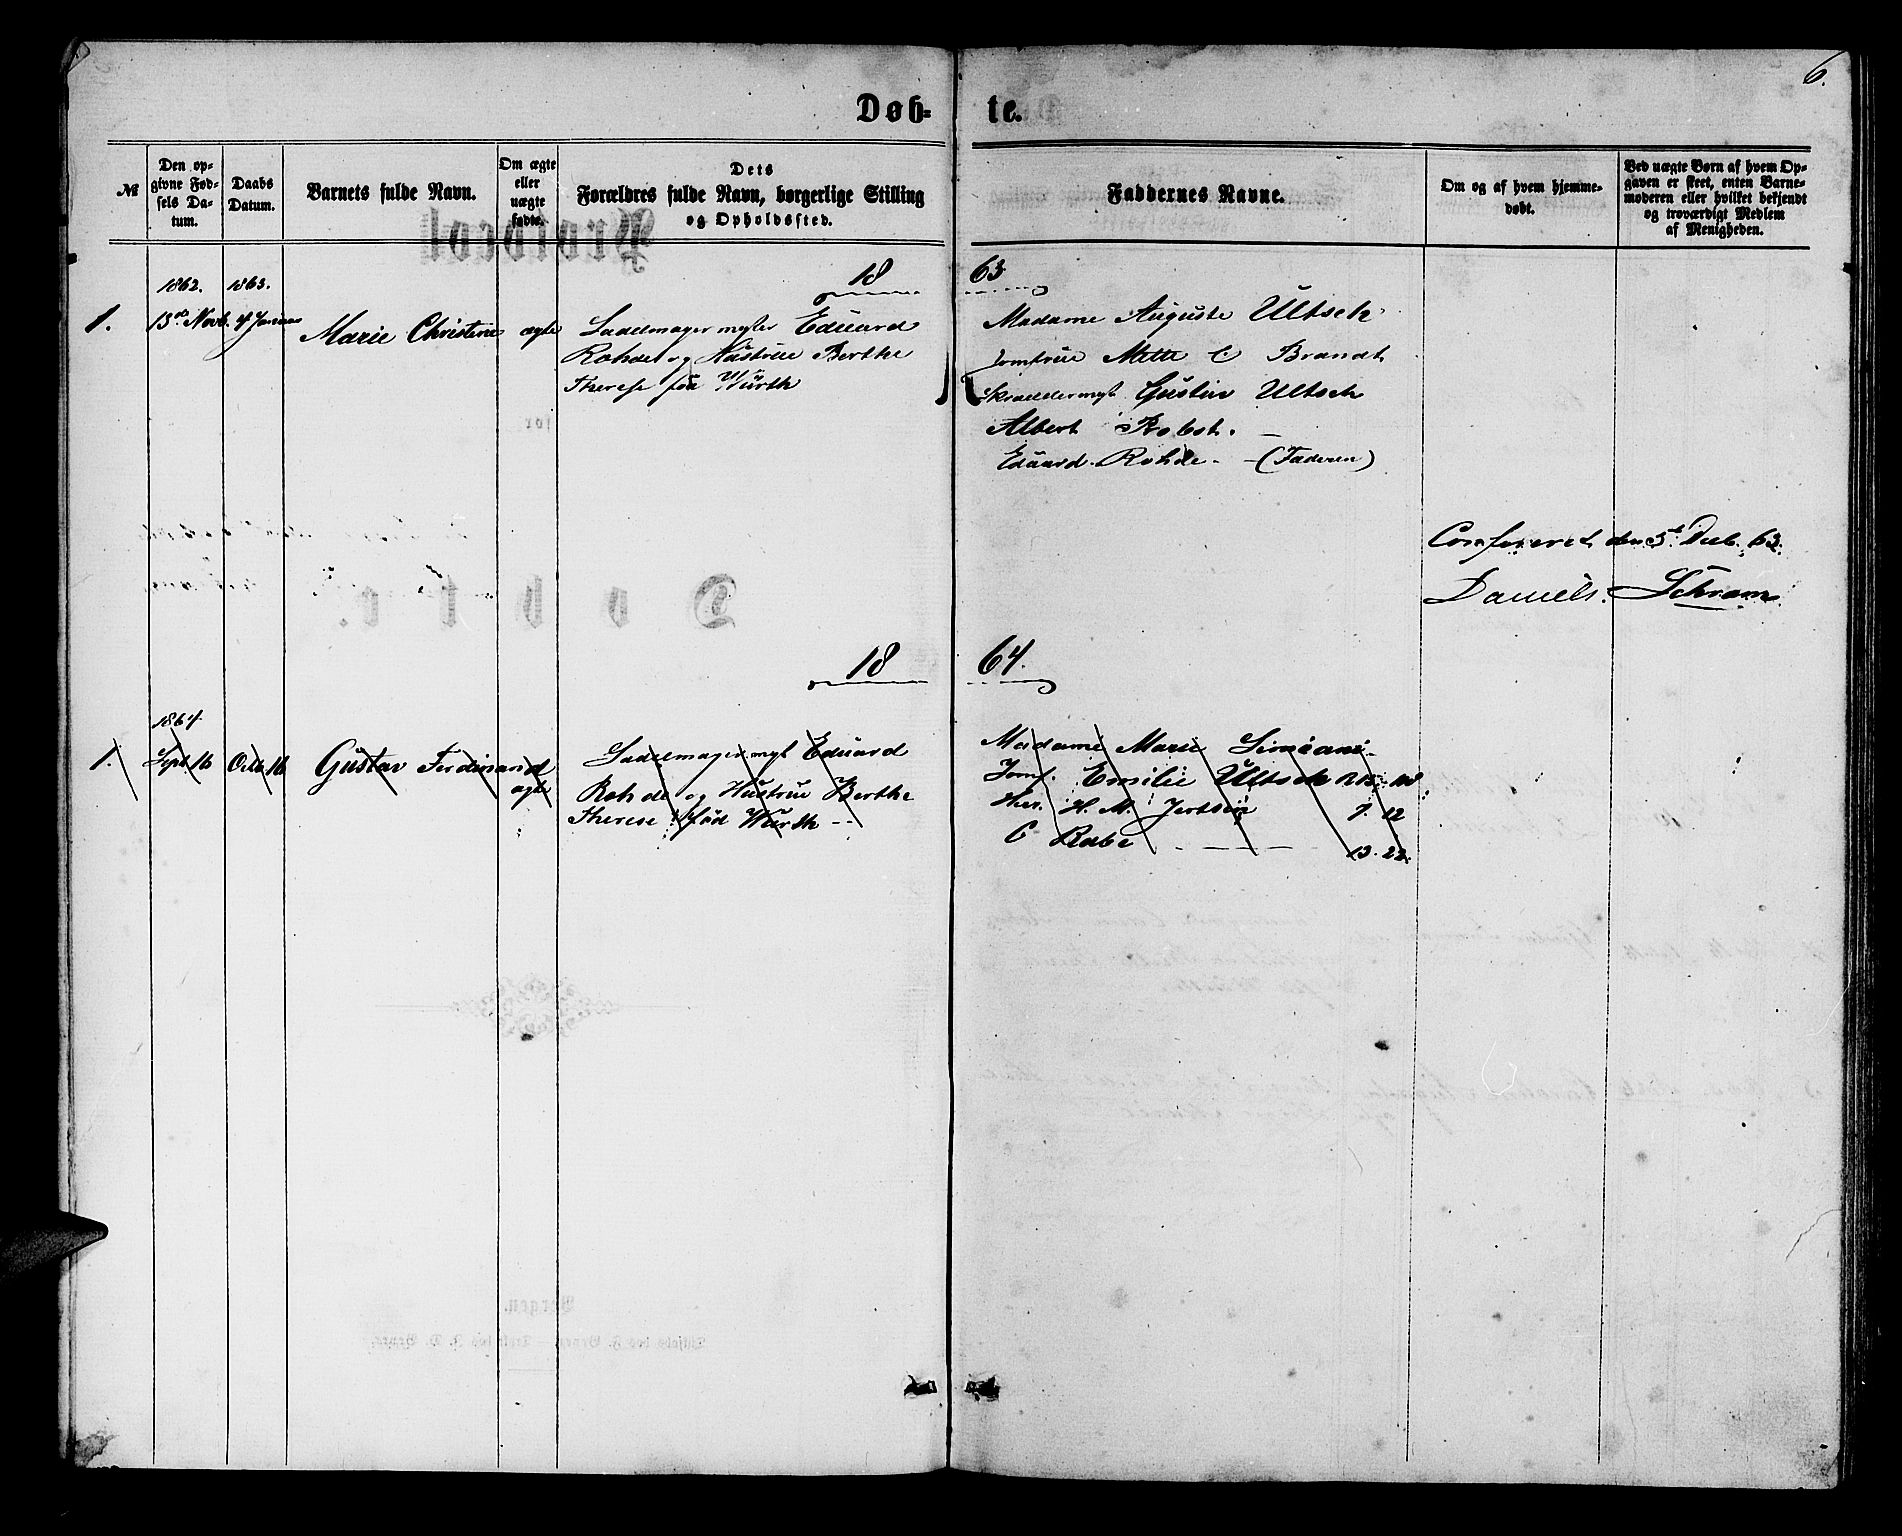 6.
Døb= te.
№
Den op=
givne Fød=
sels Da=
tum.
Daabs
Datum.
Barnets fulde Navn.
Om ægte
eller
uægte
født.
Dets
Forældres fulde Navn, borgerlige Stilling
og Opholdssted.
Faddernes Navne.
Om og af hvem hjemme=
døbt.
Ved uægte Børn af hvem Op=
gaven er skeet, enten Barne=
moderen eller hvilket bekjendt
og troværdigt Medlem
af Menigheden.
18 63
1862. 1863.
1. 15de Novb. 4 Januar Marie Christine ægte
Sadelmagermester Eduard
Rohde og Hustrue Berthe
Therese føt Würth
Madame Auguste Ultsch
Jomfrue Mette C Brandt
Skræddermst Gustav Ultsch
Albert Robst.
Eduard Rohde - (Faderen)
Confereret den 5t Decb. 63.
Daniels. Schram
18 64.
1864
1. Sept 16 Octb 16 Gustav Ferdinand ægte
Sadelmagermst Eduard
Rohde og Hustrue Berthe
Therese fød Würth
Madame Marie Simiani
Jomf. Emilie Ultsch
Her. H. M. Jertsen 1. 12
C Rabe 13. 22.